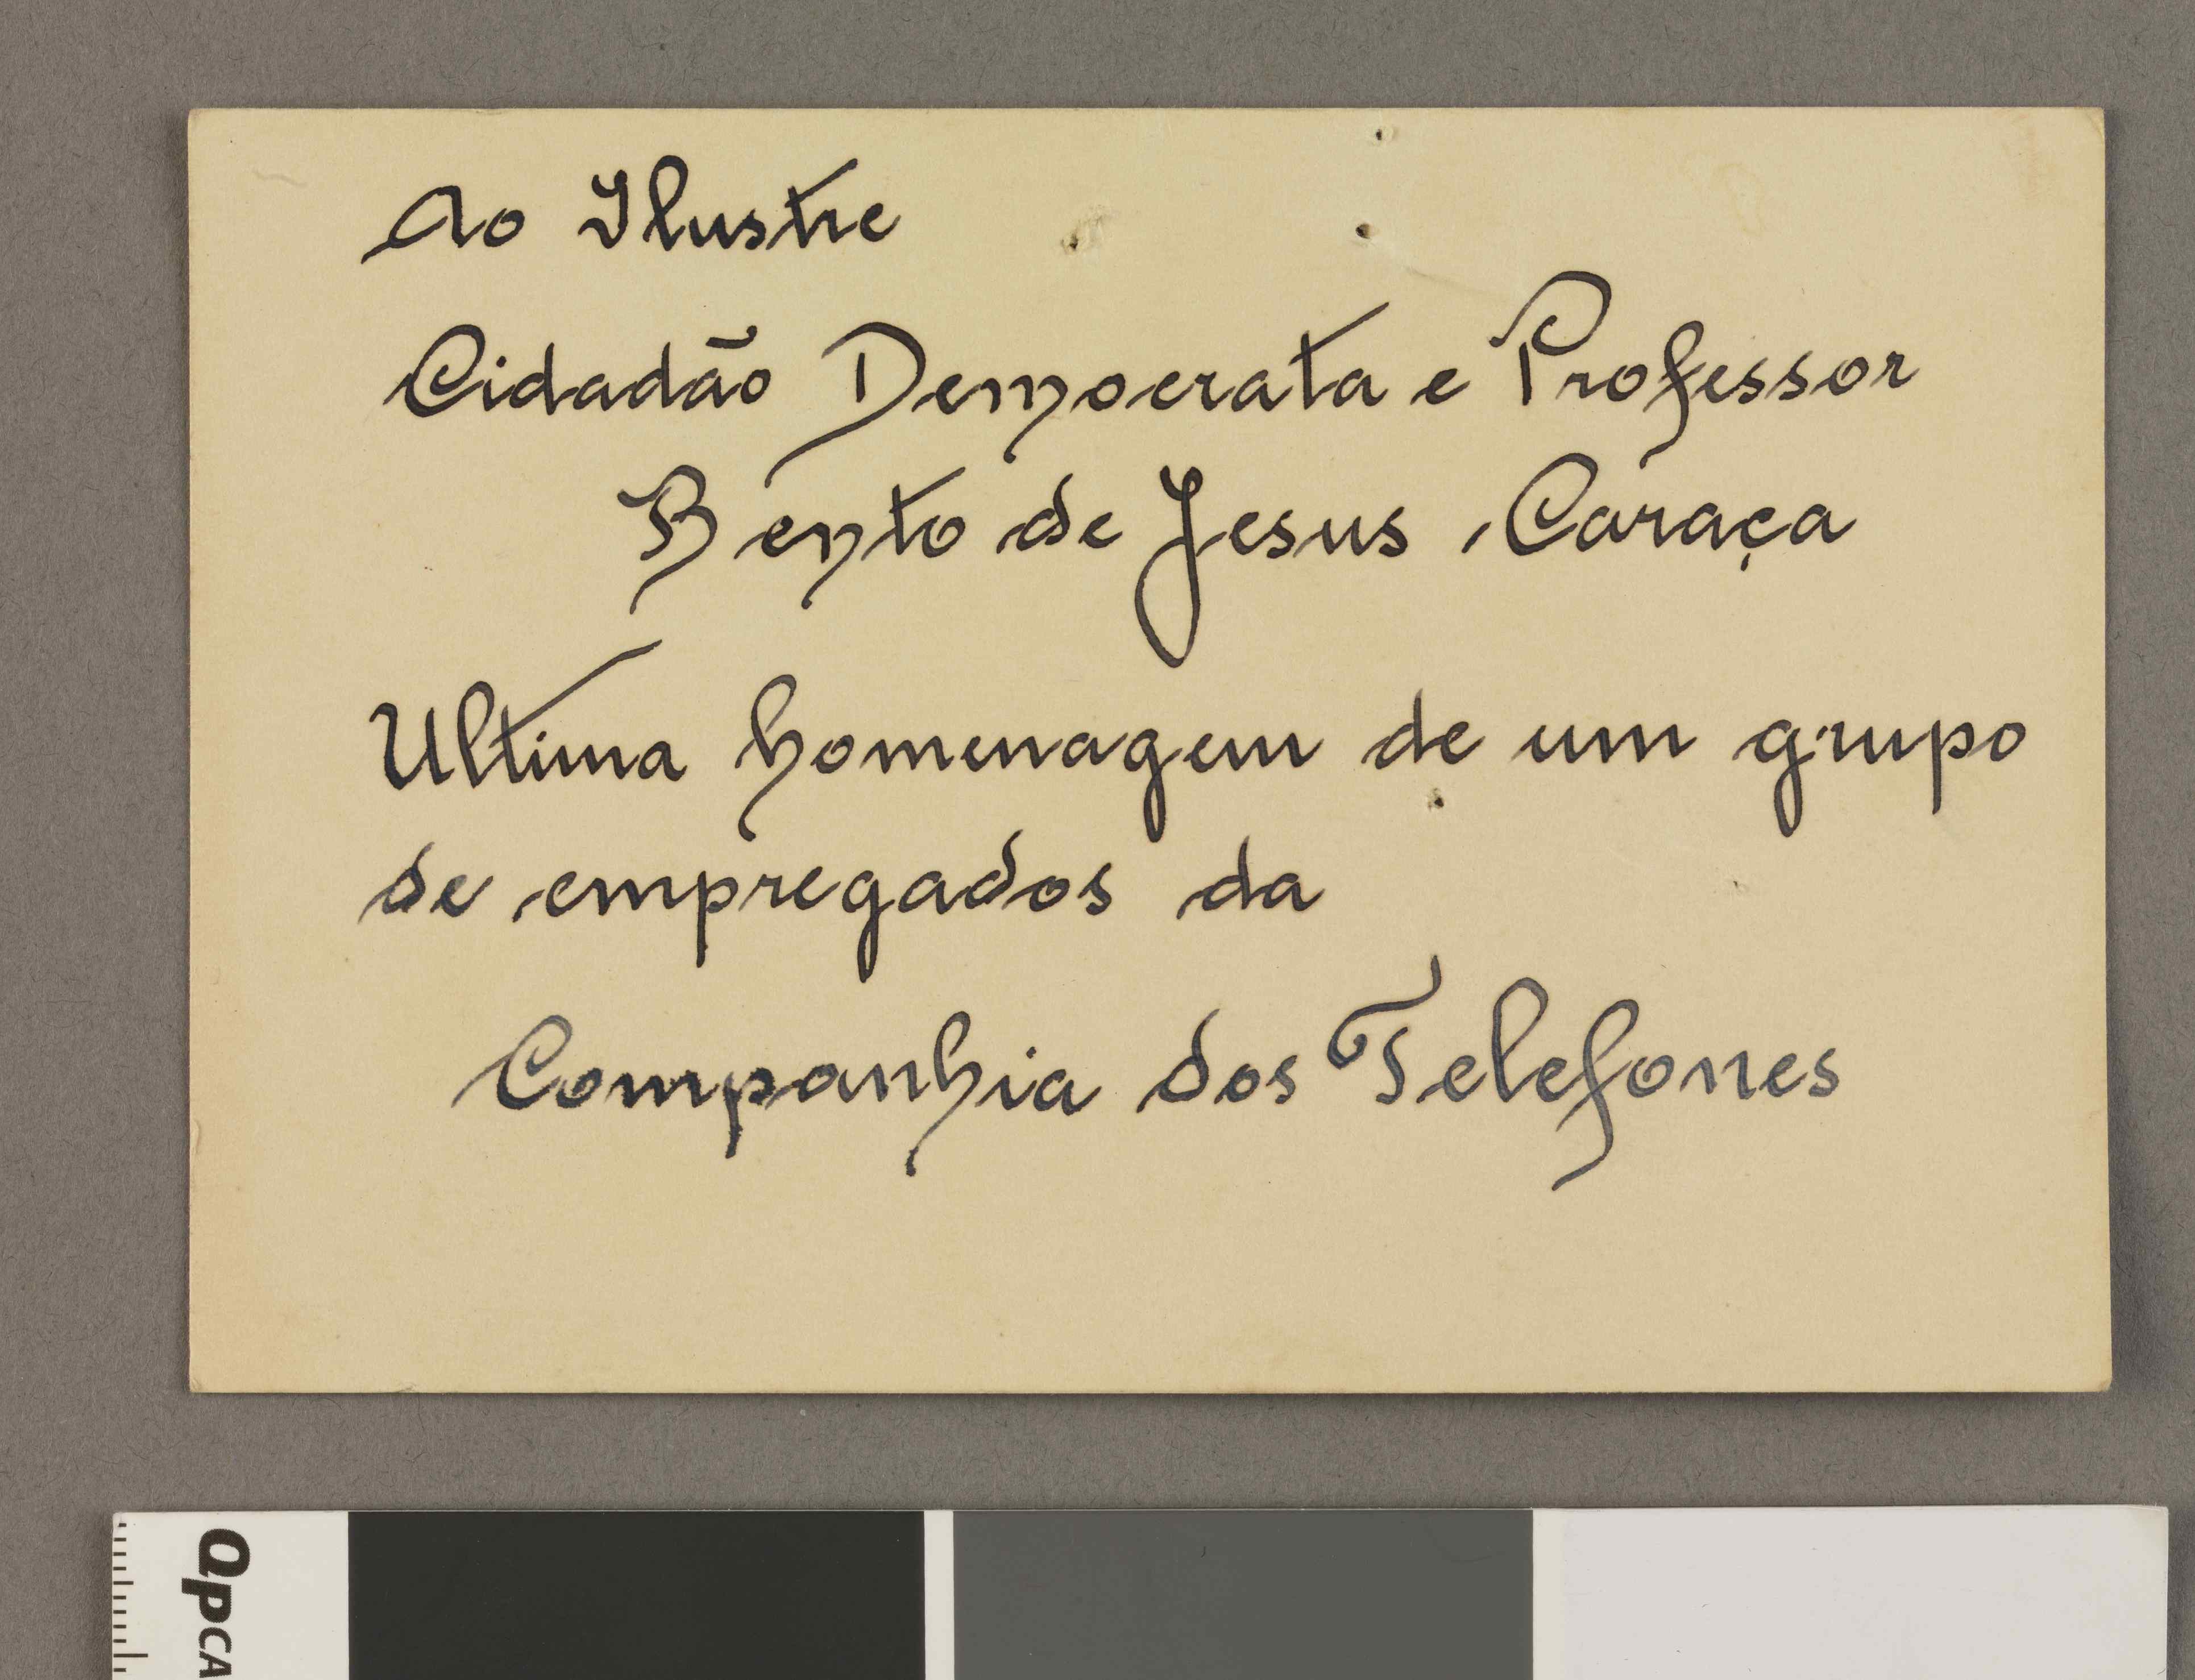 Ao Ilustre
Cidadão Democrata e Professor
Bento de Jesus Caraça
Ultima homenagem de um grupo
de empregados da
Companhia dos Telefones
QPCA